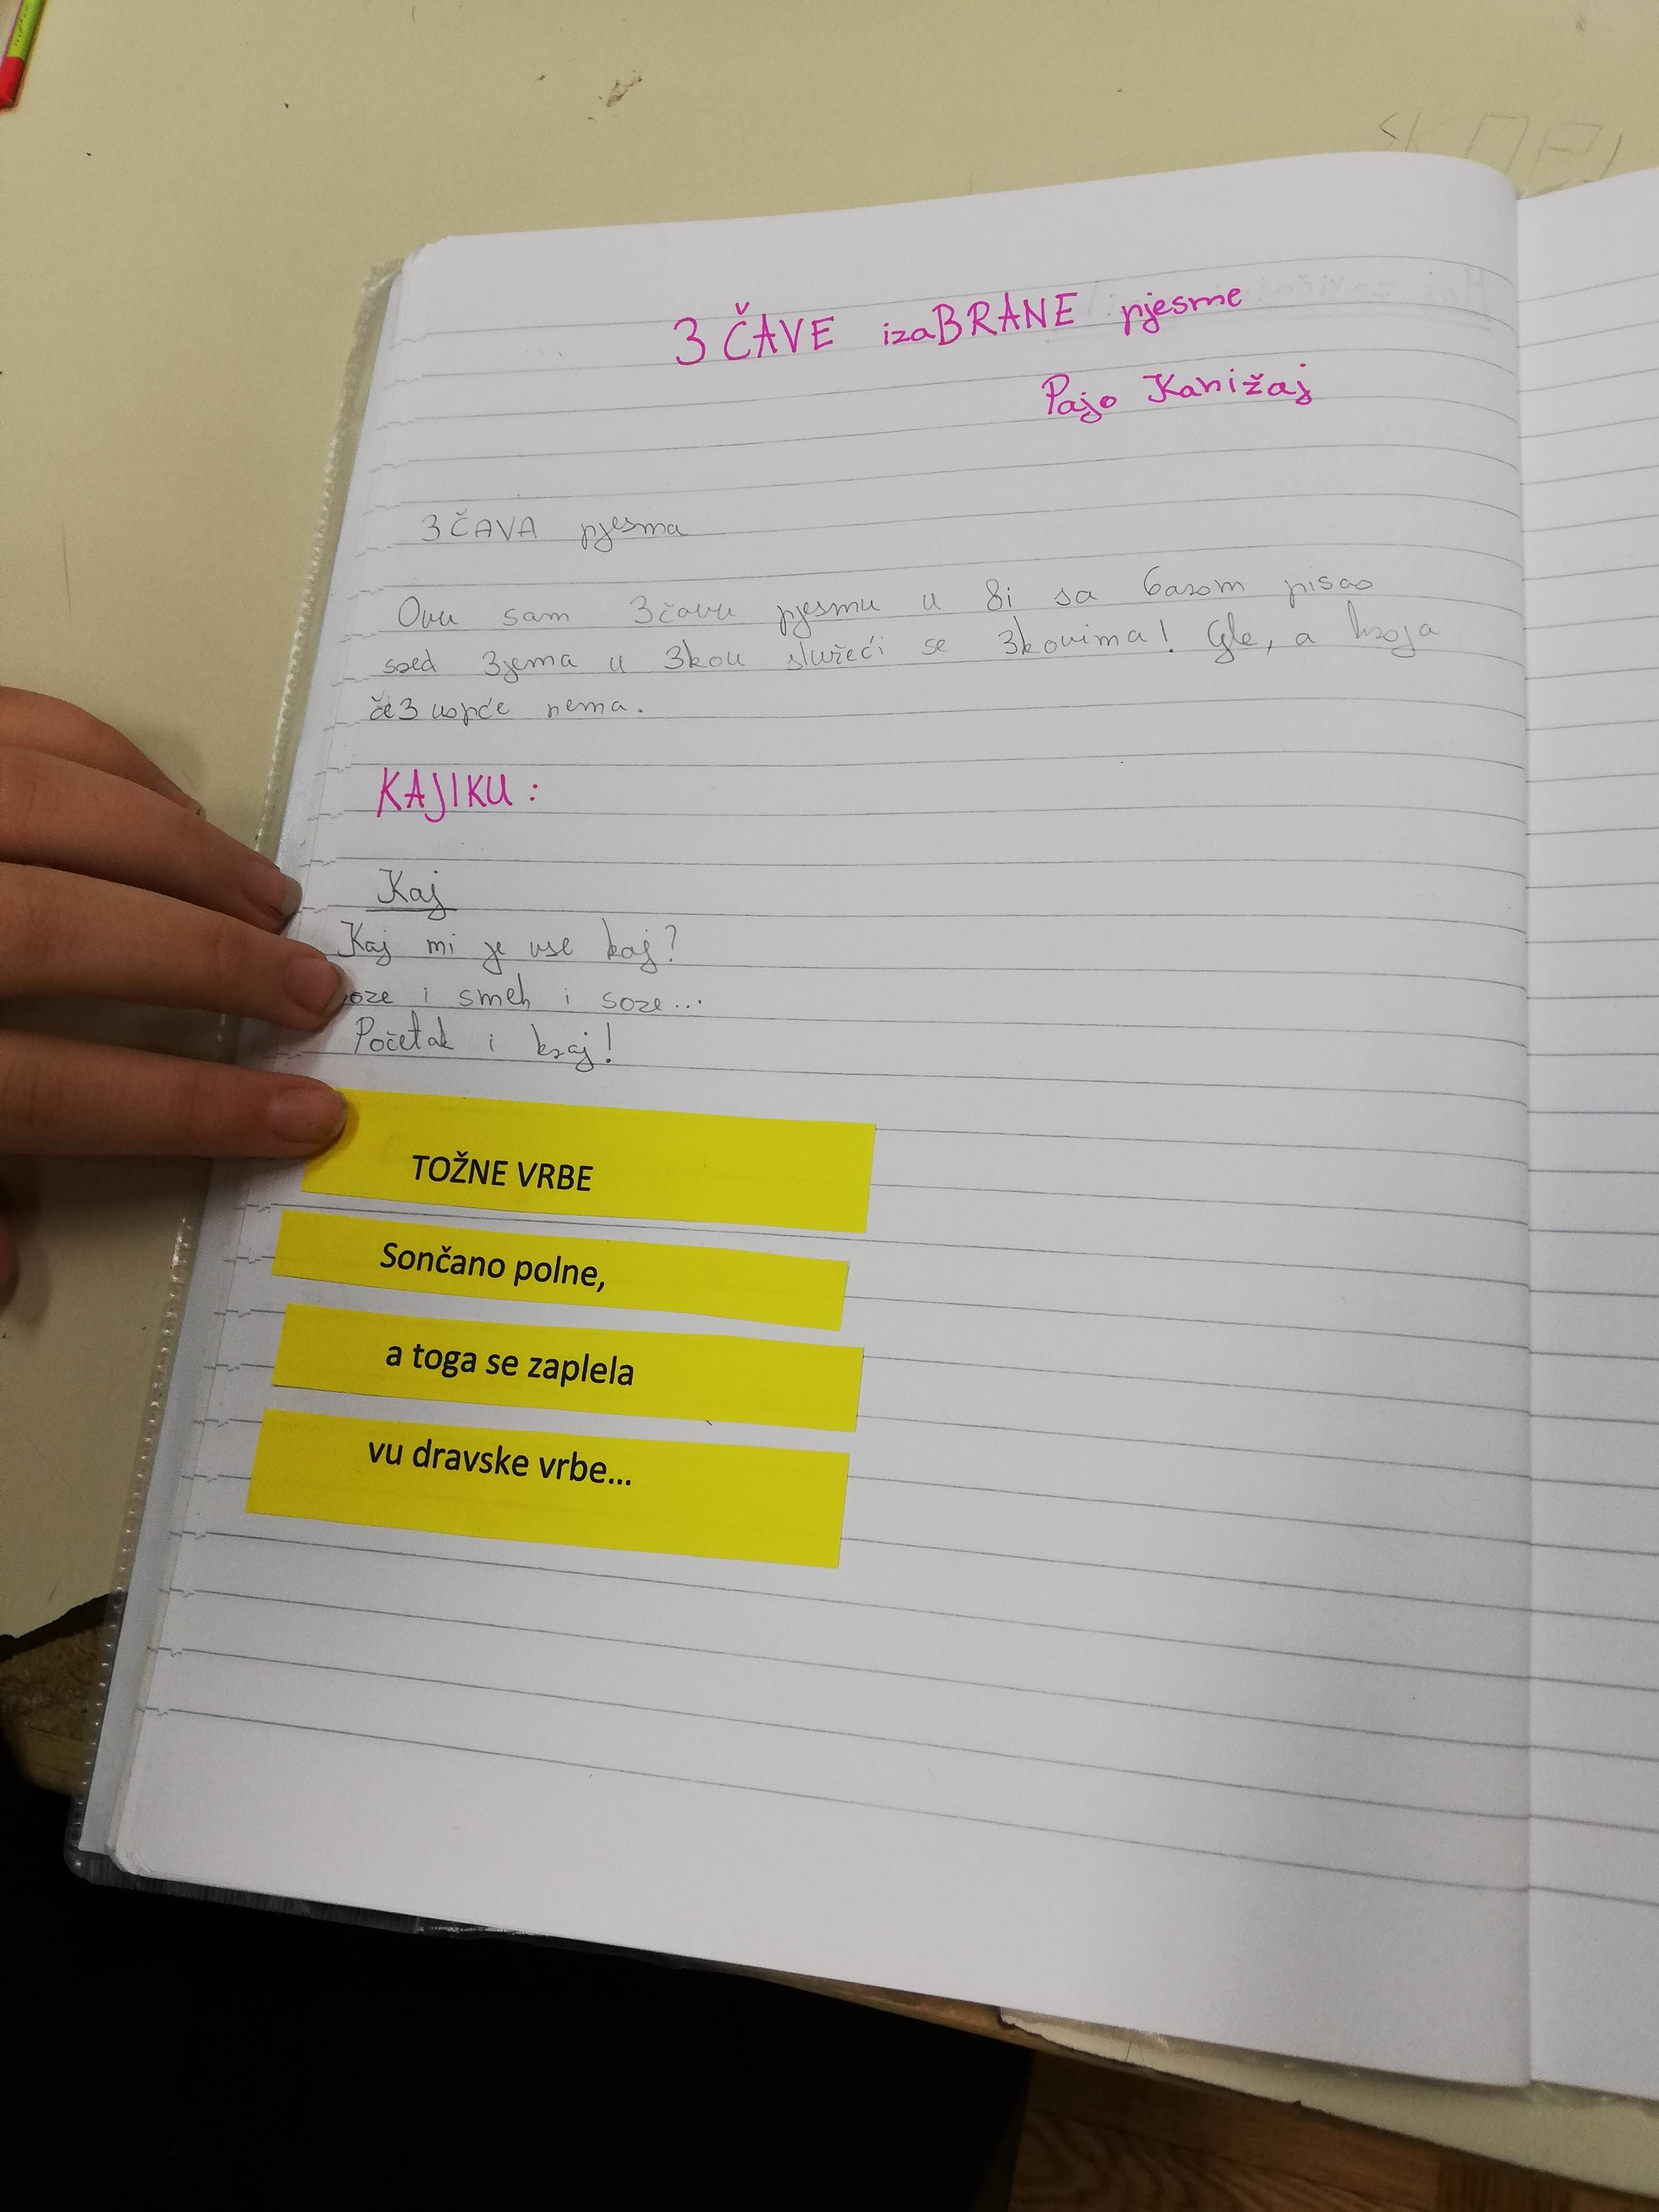 3ČAVE izaBRANE pjesme
Pajo Kanižaj
3ČAVA pjesma
Ovu sam 3čavu pjesmu u 8i sa 6asom pisao
sred 3jema u 3kou služeći se 3kovima! Gle, a kroja
če3 uopće nema.
KAJIKU:
Kaj
Kaj mi je vse kaj?
i smeh i soze...
Početak i kraj!
TOŽNE VRBE
Sončano polne,
a toga se zaplela
vu dravske vrbe...